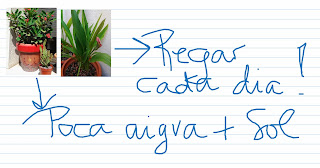 Regar
cada dia!
Poca aigva + Sol